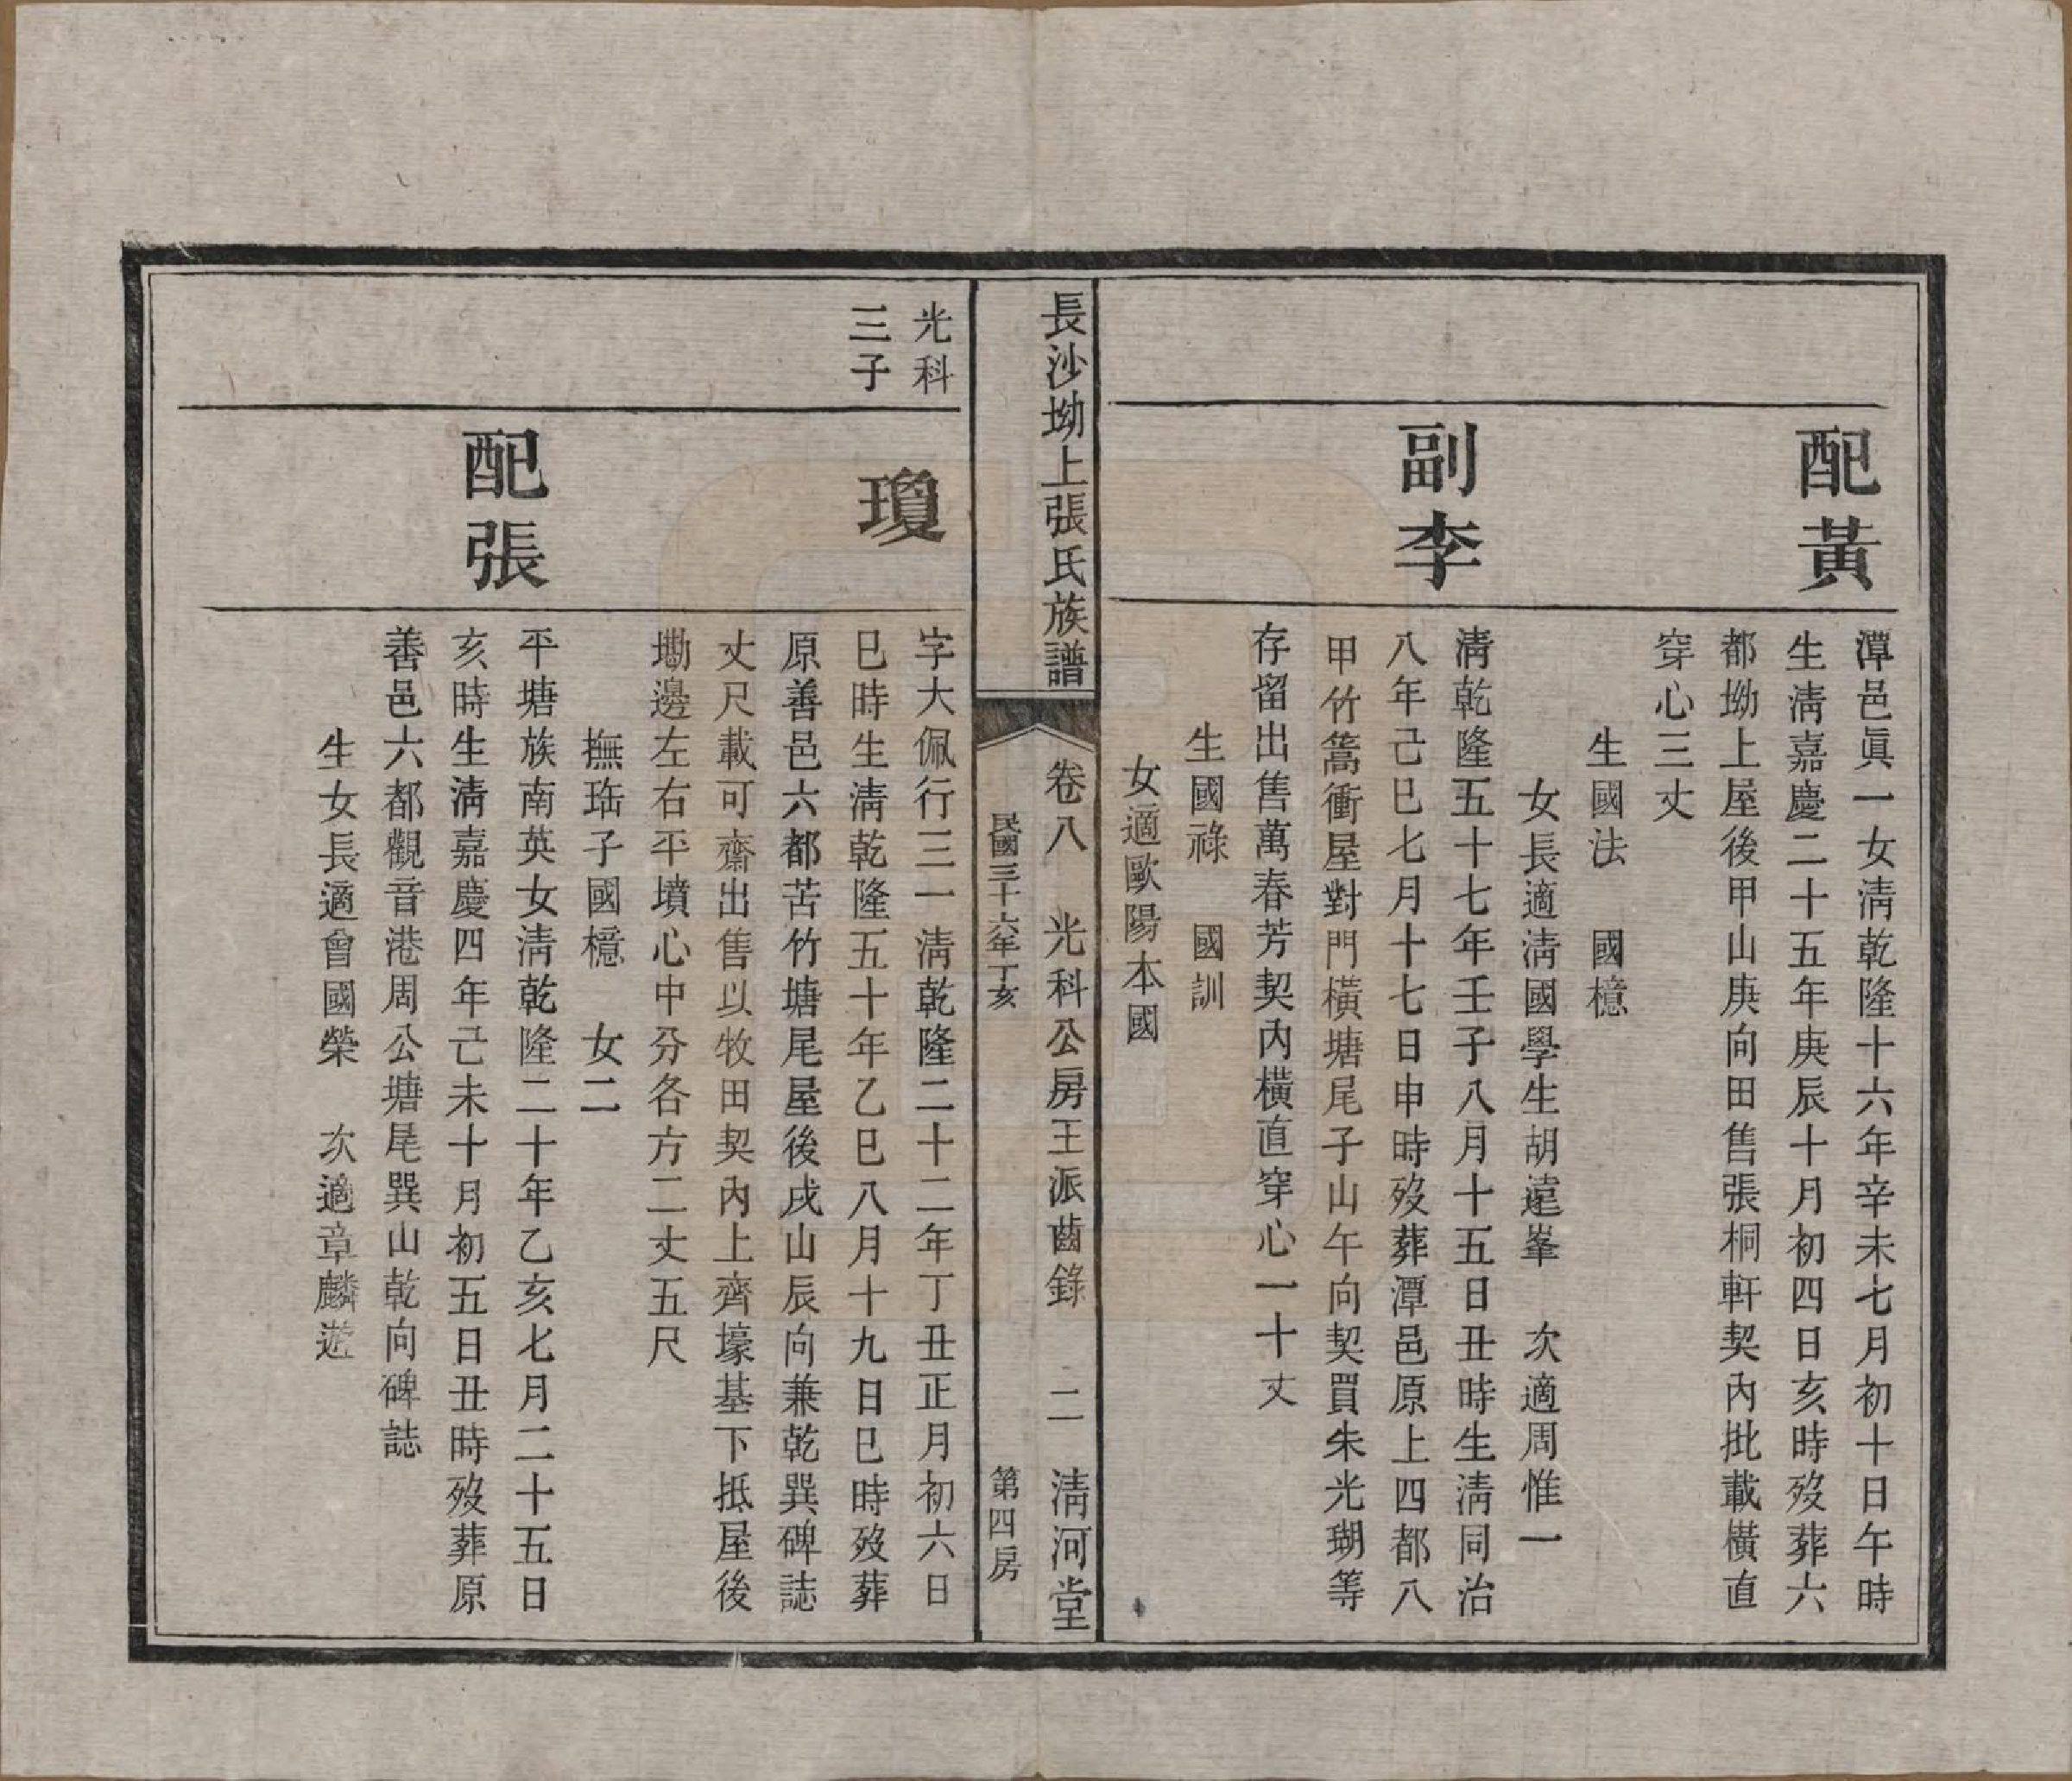 配黃
潭邑眞一女淸乾隆十六年辛未七月初十日午時
生淸嘉慶二十五年庚辰十月初四日亥時歿葬六
都坳上屋後甲山庚向田售張桐軒契內批載橫直
穿心三丈
生國法　國檍
女長適淸國學生胡遠峯　次適周惟一
副李
淸乾隆五十七年壬子八月十五日丑時生淸同治
八年己巳七月十七日申時歿葬潭邑原上四都八
甲竹篙衝屋對門橫塘尾子山午向契買朱光瑚等
存留出售萬春芳契內橫直穿心一十丈
生國祿　國訓
女適歐陽本國
長沙坳上張氏族譜
卷八　光科公房王派齒錄　二　淸河堂
民國三十六年丁亥　第四房
光科
三子
瓊
字大佩行三一淸乾隆二十二年丁丑正月初六日
巳時生淸乾隆五十年乙巳八月十九日巳時歿葬
原善邑六都苦竹塘尾屋後戌山辰向兼乾巽碑誌
丈尺載可齋出售以牧田契內上齊壕基下抵屋後
墈邊左右平墳心中分各方二丈五尺
撫珤子國檍　女二
配張
平塘族南英女淸乾隆二十年乙亥七月二十五日
亥時生淸嘉慶四年己未十月初五日丑時歿葬原
善邑六都觀音港周公塘尾巽山乾向碑誌
生女長適曾國榮　次適章麟遊